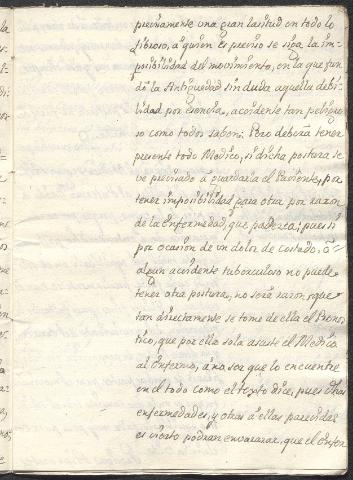 precisamente una gran laxitud en todo lo
fibroso, a quien es preciso se siga la im-
posibilidad del movimiento, en la que fun-
da la Antiguedad sin duda aquella debi-
lidad por esencia, accidente tan peligro
so como todos saben: Pero deberá tener
presente todo Medico, si dicha postura se
ve precisado a guardarla el Paciente, por
tener imposibilidad para otra por razon
de la Enfermedad, que padezca; pues si
por ocasion de un dolor de costado, ô
algun accidente tuberculoso no puede
tener otra postura, no será razon, que
tan directamente se tome de ella el Prono
tico, que por ella sola asuste el Medico
al Enfermo, á no ser que lo encuentre
en el todo como el texto dice, pues dhas
enfermedades, y otras â ellas parecidas
es cierto podran embarazar, que el Enfer